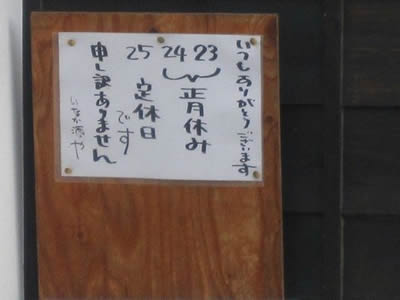 いつもありがとうございます
23
24
正月休み
25
定休日
です
申し訳ありません
いなか酒や